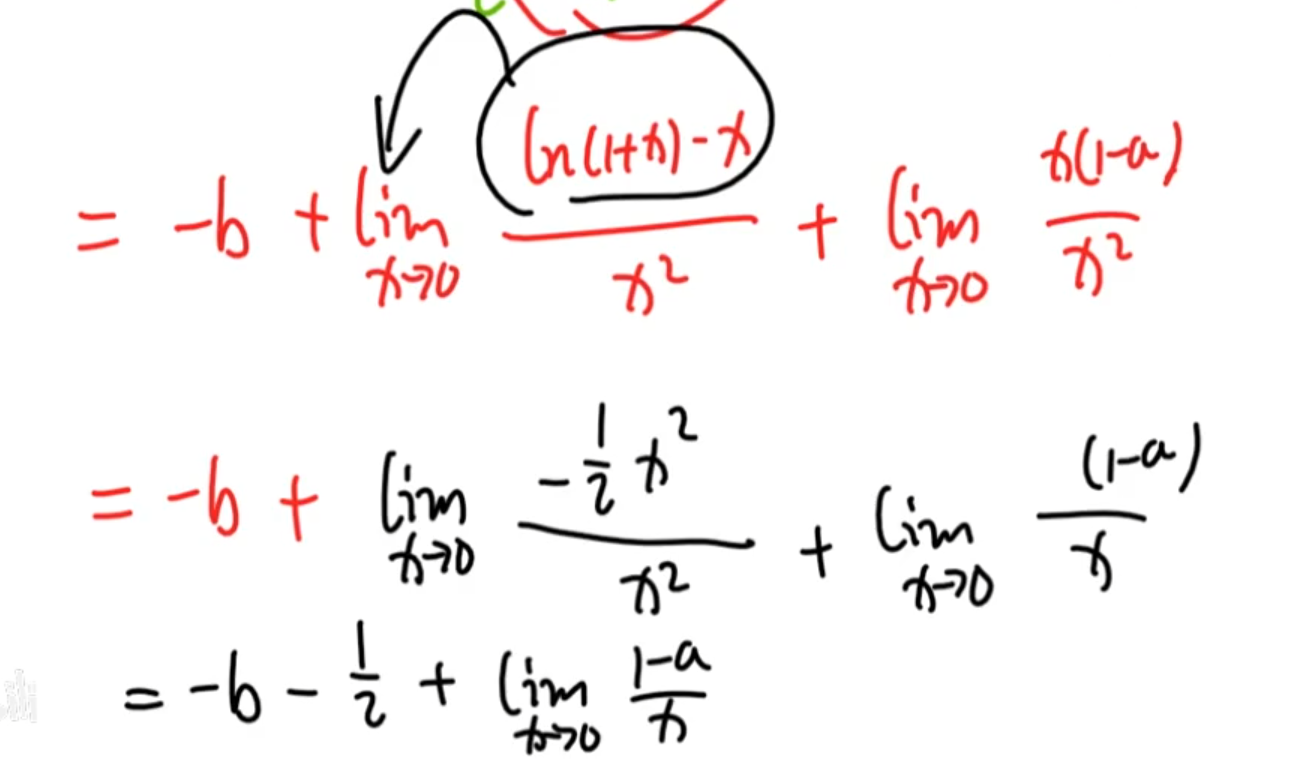 = -b + lim_{x→0} \frac{ln(1+x) - x}{x^2} + lim_{x→0} \frac{x(1-a)}{x^2}
= -b + lim_{x→0} \frac{-\frac{1}{2} x^2}{x^2} + lim_{x→0} \frac{(1-a)}{x}
= -b - \frac{1}{2} + lim_{x→0} \frac{1-a}{x}